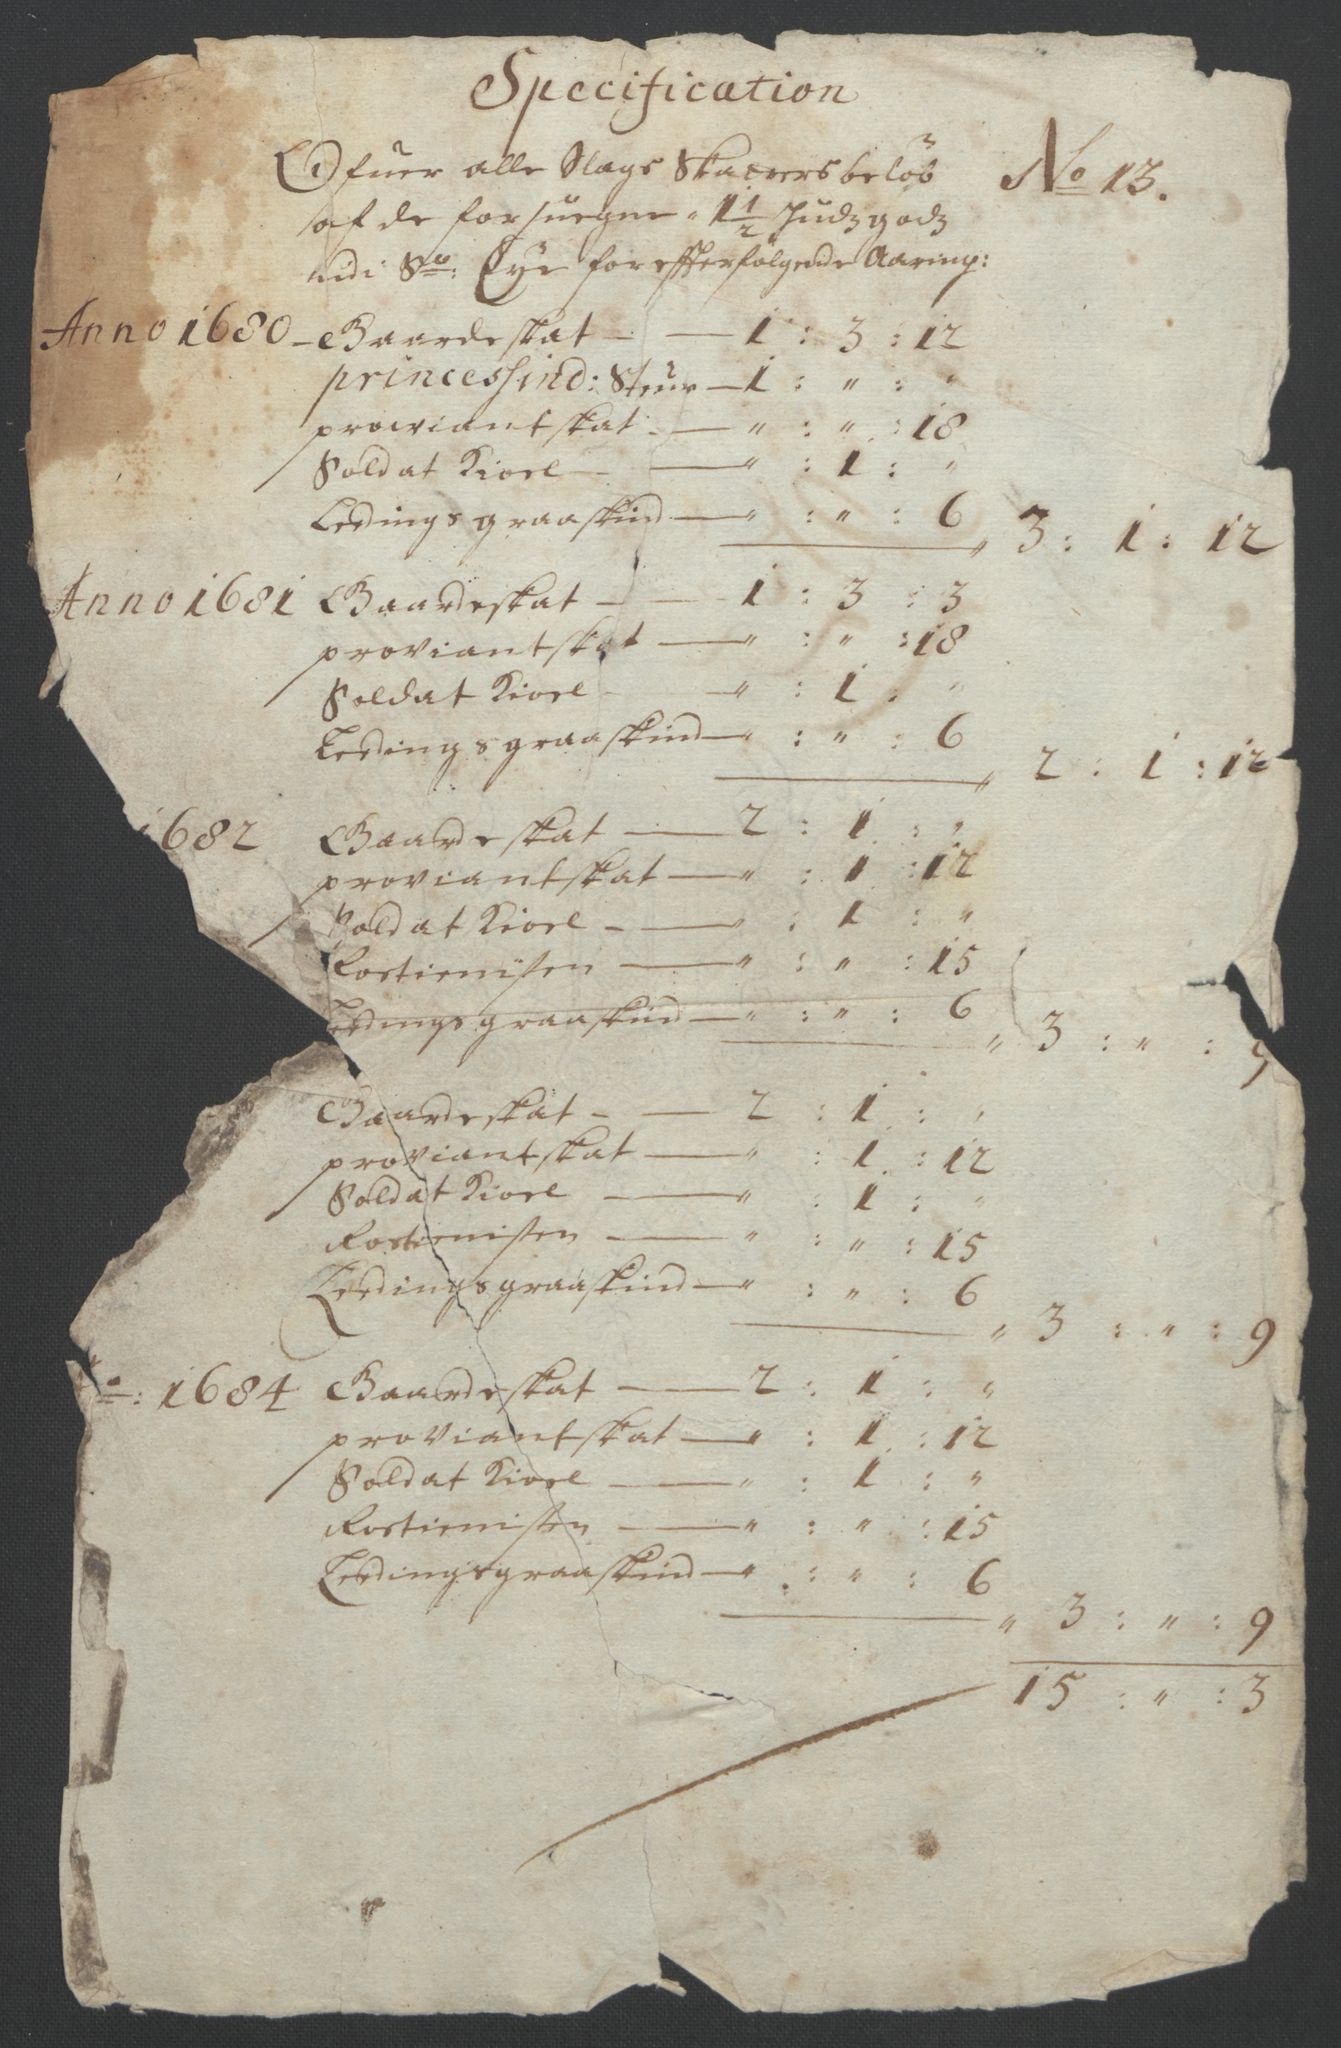 Specification
Ofuer alle Slags Skatters beløb No 13.
af de forsuegne 1 1/2 Judz godz
udi Eye for effterfølgende Aaring:
Anno 1680 Gaardeskat 1 : 3 : 12
princessind: Steur 1 : " : "
prowiantskat " : " : 18
Soldat Kioel " : 1 : "
Ledings graaskind " : " : 6 " 3 : 1 : 12
Anno 1681 Gaardeskat 1 : 3 : 3
proviantskat " : " : 18
Soldat Kioel " : 1 : "
Ledings graaskind " : " : 6 " 2 : 1 : 12
1682 Gaardeskat 2 : 1 : "
proviantskat " : 1 : 12
Soldat Kioel " : 1 : "
Rostienisten " : " : 15
Ledings graaskind " : " : 6 " 3 : " : 9
Gaardeskat 2 : 1 : "
proviantskat " : 1 : 12
Soldat Kioel " : 1 : "
Rostienisten " : " : 15
Ledings graaskind " : " : 6 " 3 : " : 9
1684 Gaardeskat 2 : 1 : "
proviantskat " : 1 : 12
Soldat Kioel " : 1 : "
Rostienisten " : " : 15
Ledings graaskind " : " : 6 " 3 : " : 9
15 : " : 3